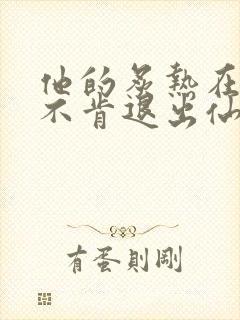 他的炙熱在
不肯退出仙
有蛋則剛